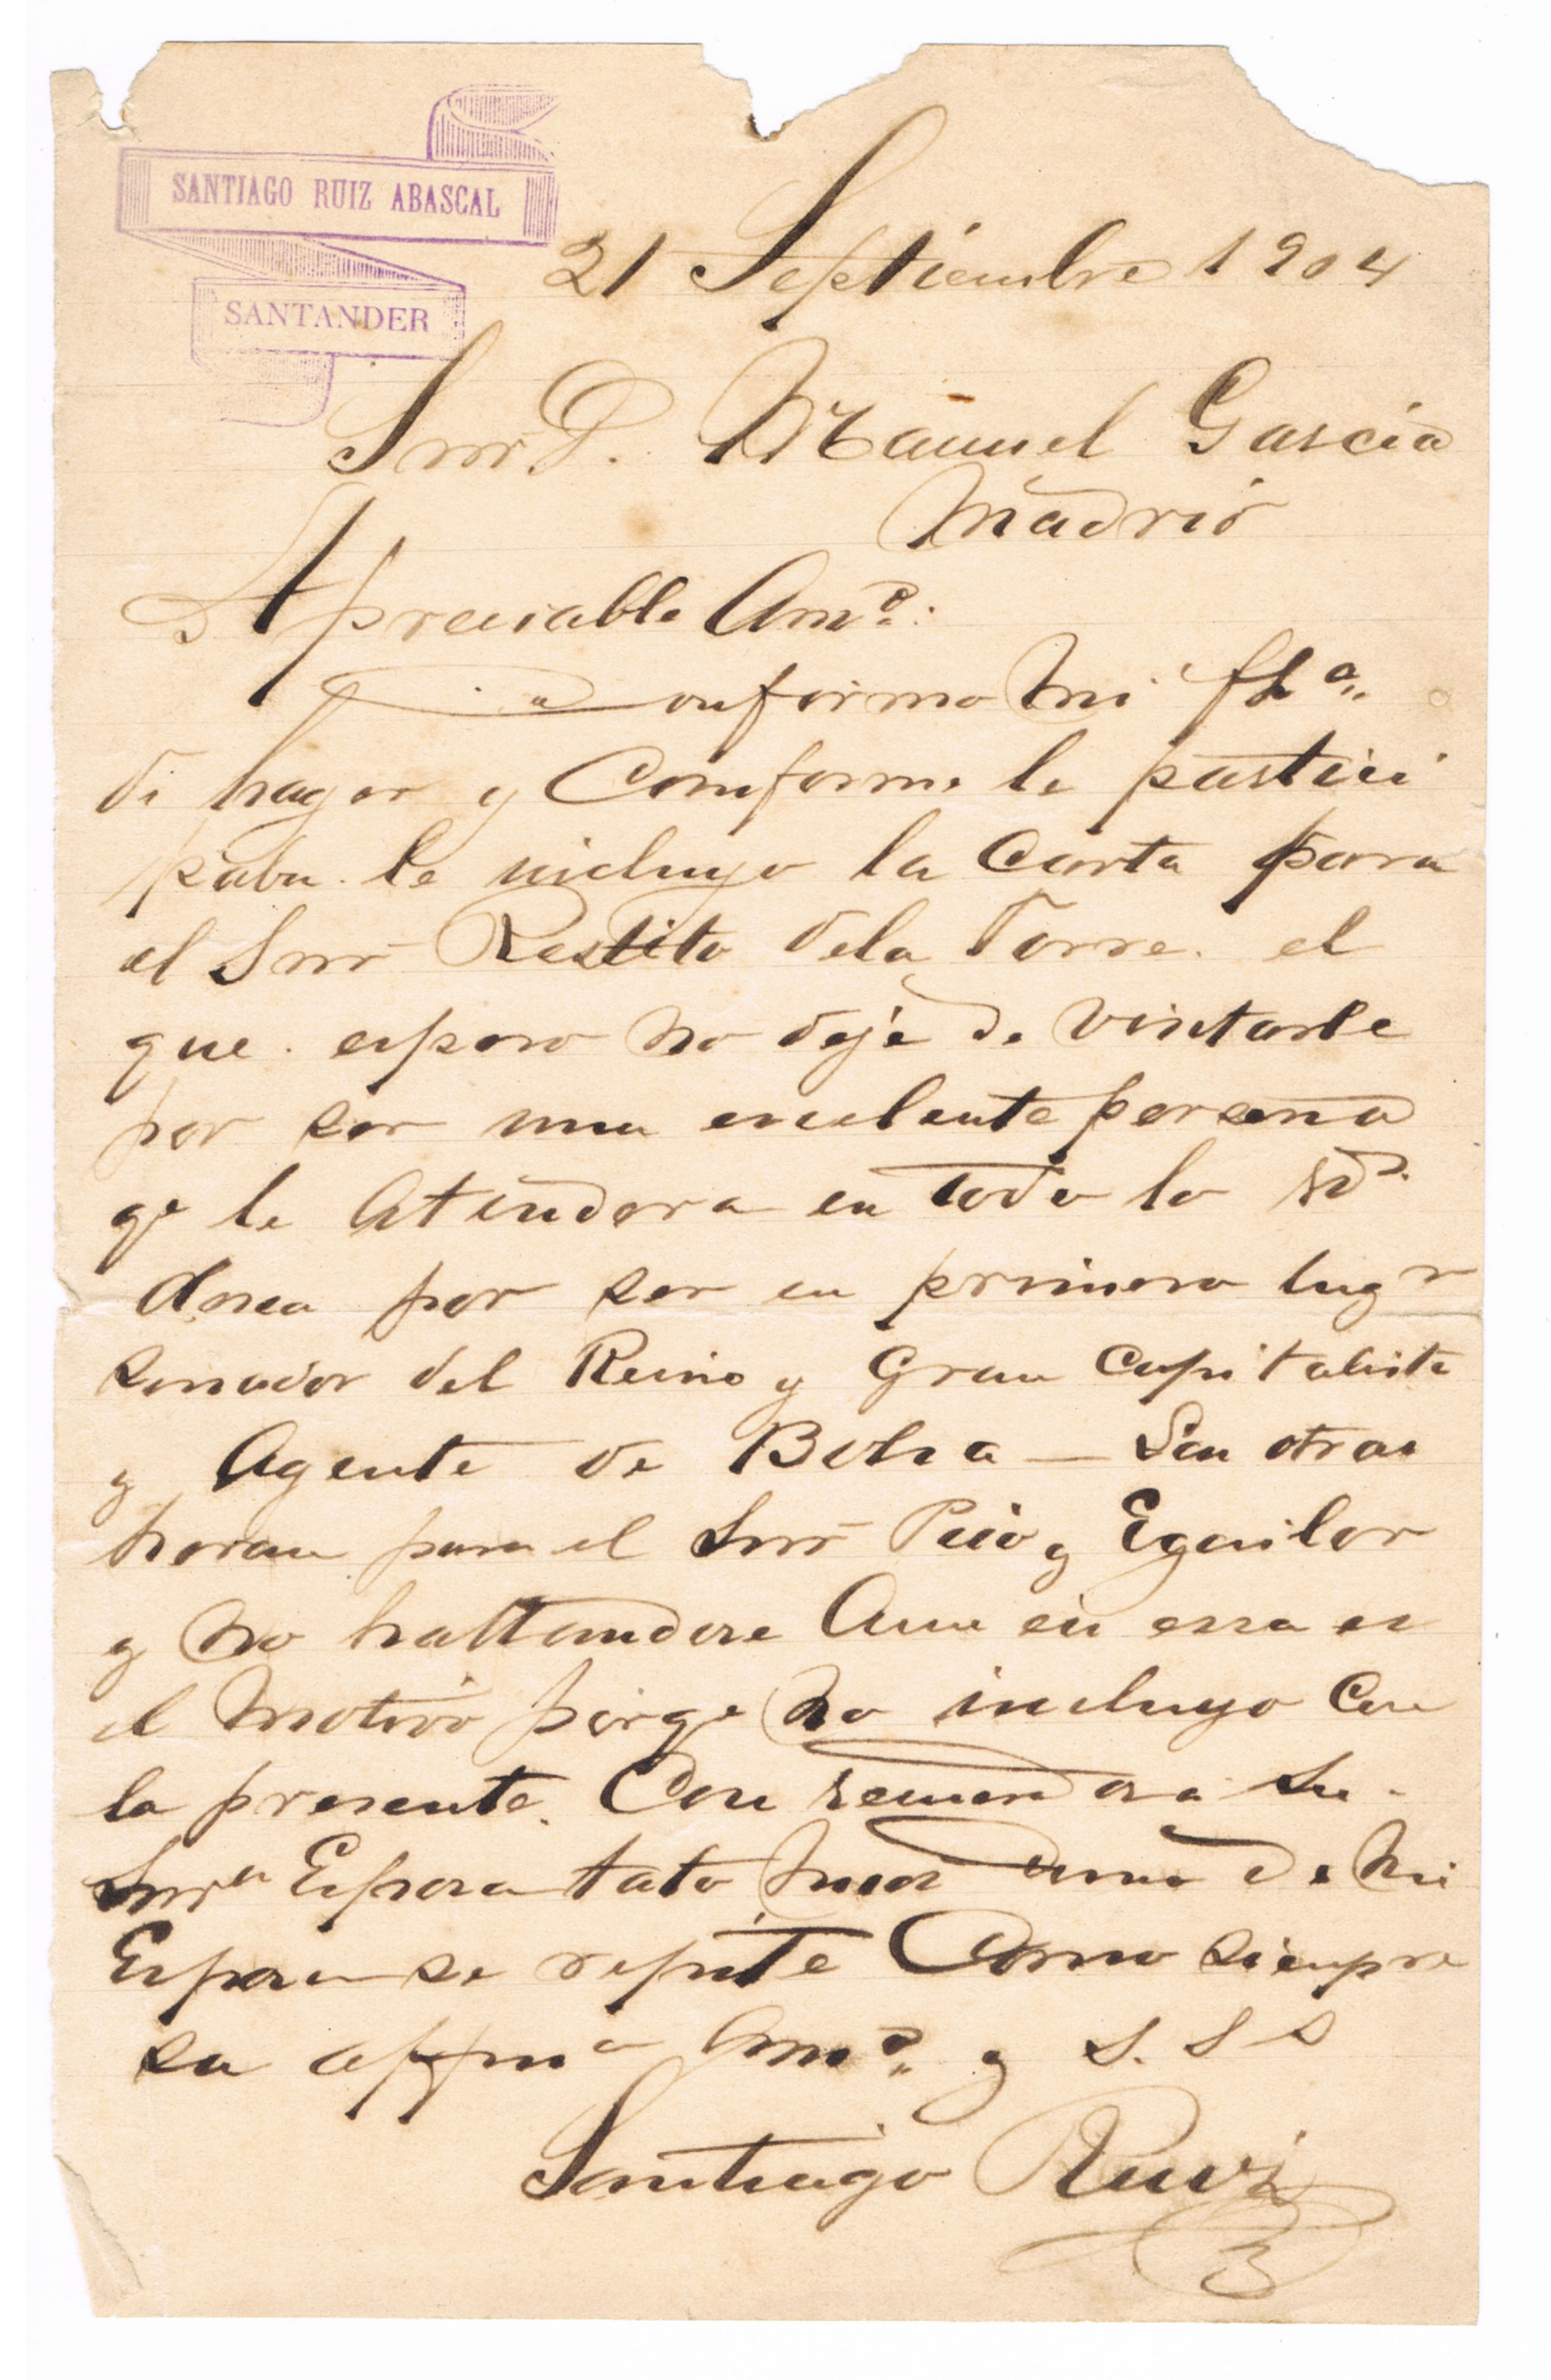 SANTIAGO RUIZ ABASCAL
SANTANDER
21 Septiembre 1904
Snr D. Manuel Garcia
Madrid
Apreciable Amº:
Conforme mi fhª
de hayer y Comforme le partici
paba le incluyo la Carta para
el Snr Restito dela Torre. el
que espero no deje de visitarle
por ser una exelente persona
qe le Atendera en todo lo
desea por ser en primero lugr
senador del Reino y Gran Capitalista
y Agente de Bolsa — Sin otras
horan para el Snr Pico y Eguilor
y no hallandose Aun en essa es
el motivo porqe no incluyo Con
la presente. Con su
Snra Esposa tato de mi
Esposa se repite Como siempre
su affmo Amº y S. S S
Santiago Ruiz